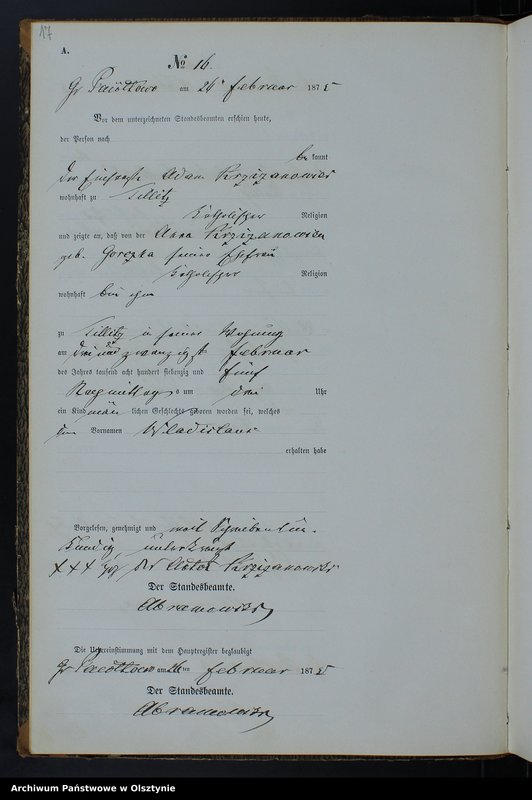 17
A.
№ 16.
Gr Pacoltowo am 26ⁿ Februar 1875
Vor dem unterzeichneten Standesbeamten erschien heute,
der Person nach
be kannt
der Adam Krzizanowski
wohnhaft zu Tillitz
katholischer Religion
und zeigte an, daß von der Anna Krzizanowska
geb. Goreзka seiner Ehefrau
katholischer Religion
wohnhaft bei ihm
zu Tillitz in seiner Wohnung
am drei und zwanzigst Februar
des Jahres tausend acht hundert siebenzig und fünf
Nachmittags um drei Uhr
ein Kind männ lichen Geschlechts geboren worden sei, welches
den Vornamen Wladislaus
erhalten habe
Vorgelesen, genehmigt und weil Schreibens un-
kundig, unterkreuzt
+++ Krzizanowski
Der Standesbeamte.
Abramowski
Die Uebereinstimmung mit dem Hauptregister beglaubigt
Gr Pacoltowo am 26ten Februar 1875
Der Standesbeamte.
Abramowski
Archiwum Państwowe w Olsztynie